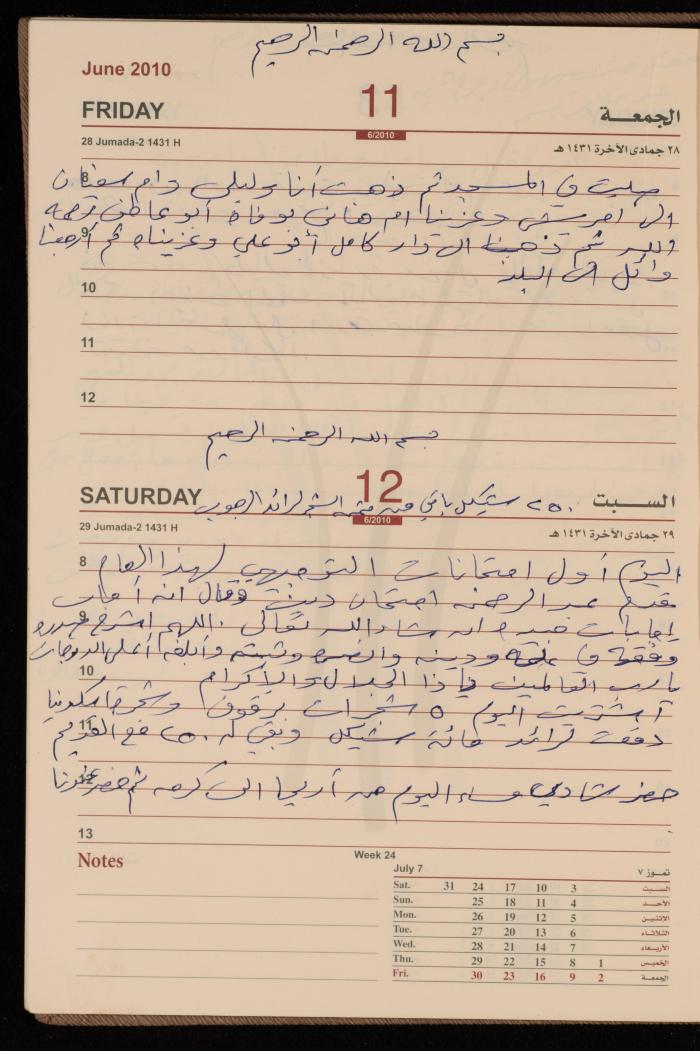 بسم الله الرحمن الرحيم
June 2010
FRIDAY 11 الجمعة
6/2010
28 Jumada-2 1431 H ٢٨ جمادى الآخرة ١٤٣١ هـ
8
صليت في المسجد ثم ذهبت أنا و وام سفيان
الى وعزينا ام هاني بوفاة ابو عاطف رحمه
9
الله ثم ذهبنا الى دار كامل ابو علي وعزيناه ثم ارجعنا
وائل الى البلد
10
11
12
بسم الله الرحمن الرحيم
SATURDAY 12 السبت
٢٥٠ شيكل باقي من لرائد
6/2010
29 Jumada-2 1431 H ٢٩ جمادى الآخرة ١٤٣١ هـ
8
اليوم أول امتحانات التوجيهي لهذا العام
قدم عبد الرحمن امتحان وقال انه أجاب
9
إجابات جيدة ان شاء الله تعالى . اللهم اشرح صدره
وفقهه في ودينه وثبته
10
يارب العالمين يا ذا الجلال والإكرام
اشتريت اليوم ٥ شجرات برقوق وشجرة
11
دفعت لرائد مائة شيكل وبقي له ٢٥٠ مع القديم
12
حضر شادي مساء اليوم من أريحا الى ثم حضر
13
Notes
Week 24
July 7 تمـوز ٧
Sat. 31 24 17 10 3 السبت
Sun. 25 18 11 4 الأحد
Mon. 26 19 12 5 الاثنين
Tue. 27 20 13 6 الثلاثاء
Wed. 28 21 14 7 الأربعاء
Thu. 29 22 15 8 1 الخميس
Fri. 30 23 16 9 2 الجمعة